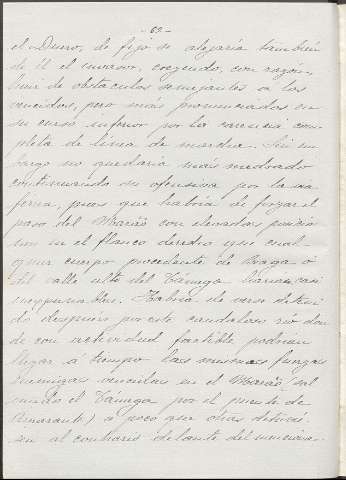 - 69 -
el Duero, de fijo se alejaría también
de él el invasor, creyendo, con razón,
huir de obstaculos semejantes a los
vencidos, pero más pronunciados en
su curso inferior por la carencia com
pleta de linea de marcha. Sin em
bargo no quedaria más medrado
continuando su ofensiva por la
pues que habria de forzar el
paso del Marão con elevadas posicio
nes en el flanco derecho que cual
quier cuerpo procedente de Braga ó
del valle alto del Támega harian casi
inexpugnables. Habria de verse deteni
do despues por este caudaloso rio don
de con actividad factible podrian
llegar a tiempo las mismas fuerzas
enemigas vencidas en el Marão, sal
vando el Tamega por el puente de
Amarante, a poco que otras detuvie
sen al contrario delante del